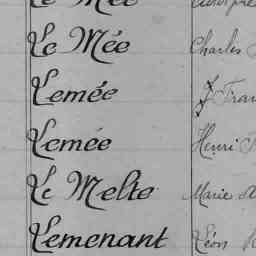 Le Mée
Le Mée Charles
Lemée J Fran
Lemée Henri
Le Melte Marie
Lemenant Léon